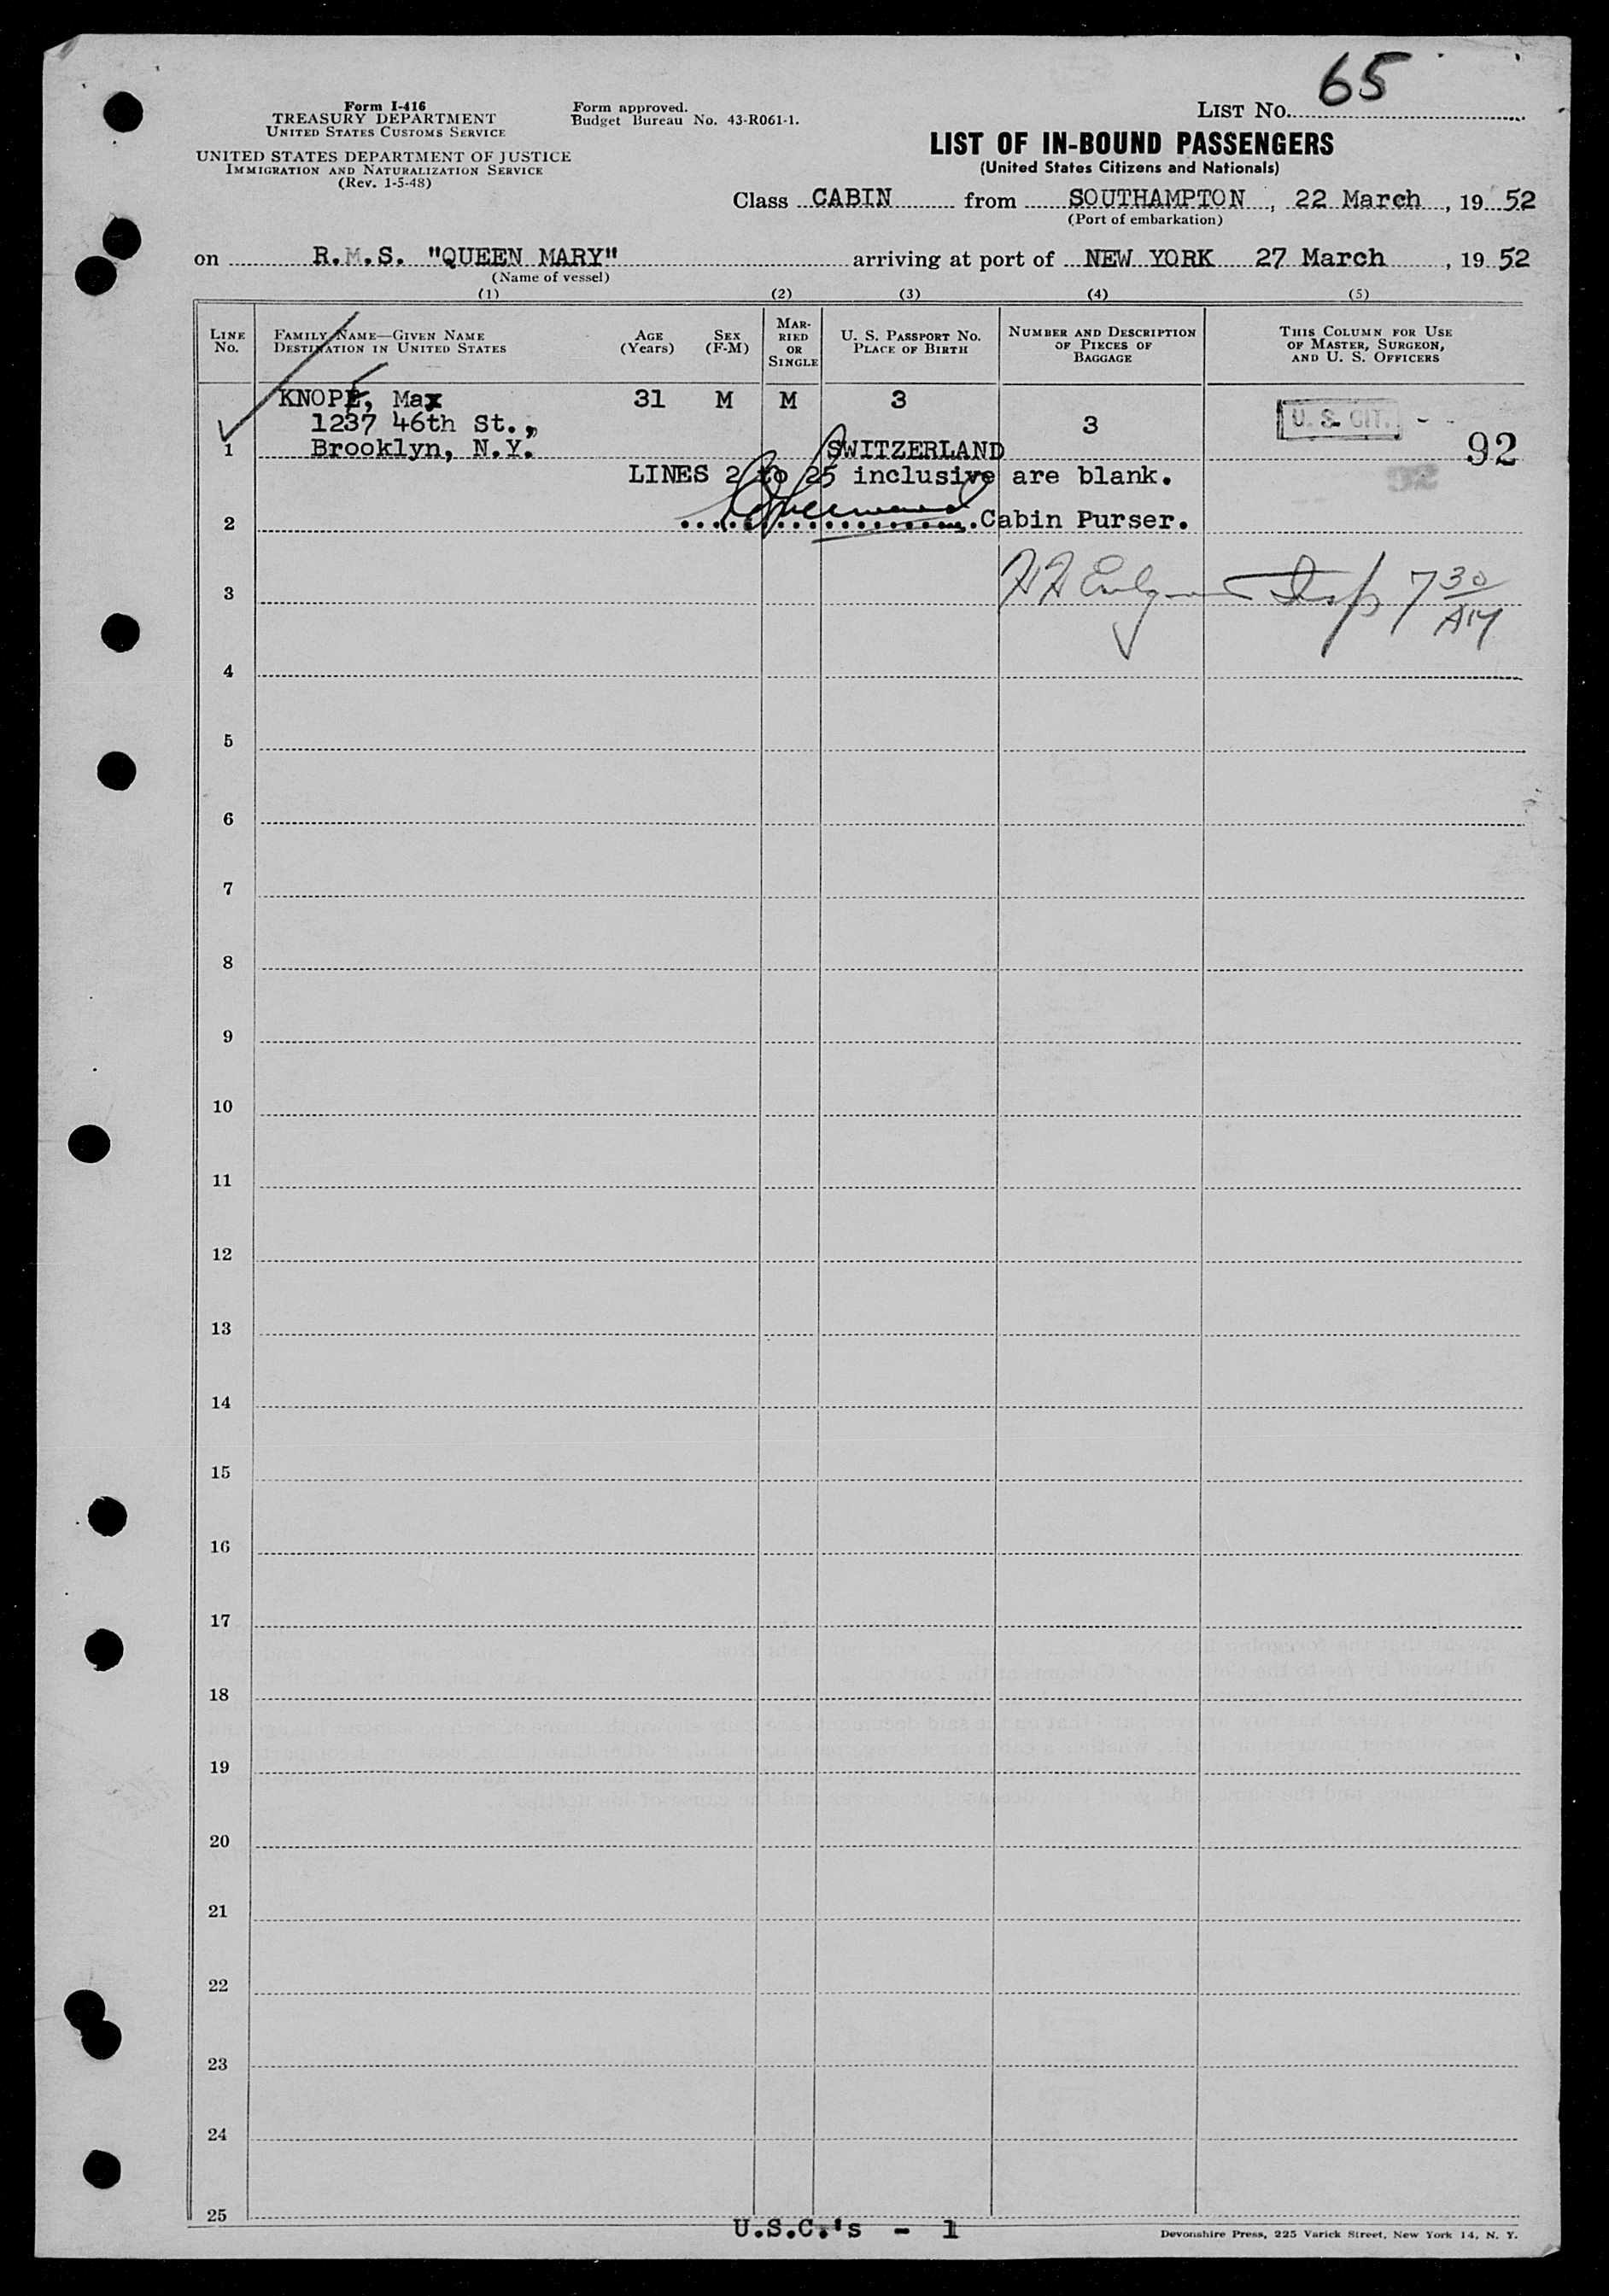 65
Form I-416
TREASURY DEPARTMENT
UNITED STATES CUSTOMS SERVICE
UNITED STATES DEPARTMENT OF JUSTICE
IMMIGRATION AND NATURALIZATION SERVICE
(Rev. 1-5-48)
Form approved.
Budget Bureau No. 43-R061-1.
LIST No.
LIST OF IN-BOUND PASSENGERS
(United States Citizens and Nationals)
Class CABIN from SOUTHAMPTON, 22 March, 19 52
(Port of embarkation)
on R.M.S. "QUEEN MARY" arriving at port of NEW YORK 27 March, 19 52
(Name of vessel)
(1) (2) (3) (4) (5)
LINE No.
FAMILY NAME—GIVEN NAME
DESTINATION IN UNITED STATES
AGE (Years)
SEX (F-M)
MARRIED OR SINGLE
U. S. PASSPORT No.
PLACE OF BIRTH
NUMBER AND DESCRIPTION OF PIECES OF BAGGAGE
THIS COLUMN FOR USE OF MASTER, SURGEON, AND U. S. OFFICERS
KNOPE, Max 31 M M 3
1237 46th St., 3 U. S. CIT.
1 Brooklyn, N.Y. SWITZERLAND 92
LINES 2 to 25 inclusive are blank.
2 Cabin Purser.
3 7 30 AM
4
5
6
7
8
9
10
11
12
13
14
15
16
17
18
19
20
21
22
23
24
25
U.S.C.'s - 1
Devonshire Press, 225 Varick Street, New York 14, N. Y.